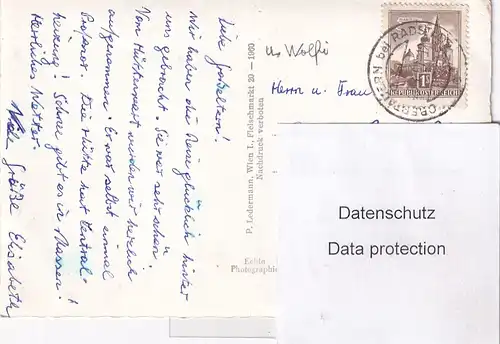 Liebe Großeltern!
Wir haben die Reise glücklich hinter
uns gebracht. Sie war sehr schön!
Vom Hüttenwart wurden wir herzlich
aufgenommen. Er war selbst einmal
Die Hütte hat Zentral-
heizung! Schnee gibt es in Massen!
Herrliches Wetter.
Viele Grüße Elisabeth
us Wolfi
P. Ledermann, Wien I, Fleischmarkt 20 — 1960
Nachdruck verboten
Echte
Photographie
Herrn u. Frau
REPUBLIK ÖSTERREICH
OBERTAUERN bei RADST
Datenschutz
Data protection